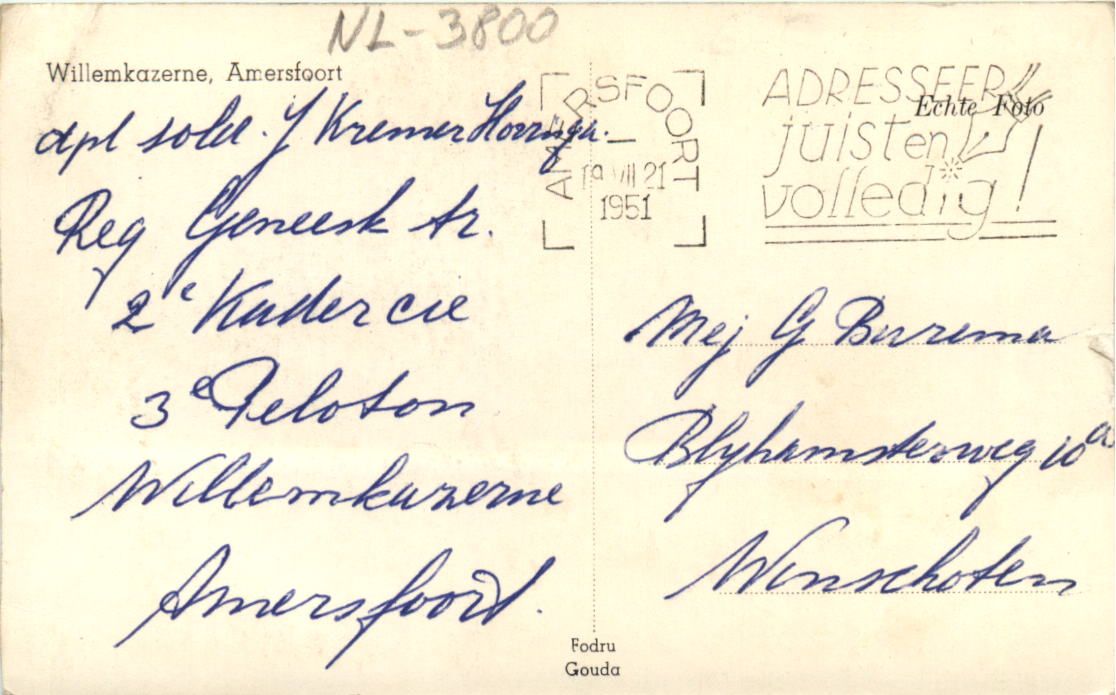 NL-3800
Willemkazerne, Amersfoort
dpl sold. J Kremer Horringa.
Reg Geneesk tr.
2e Kadercie
3e Peloton
Willemkazerne
Amersfoort.
AMERSFOORT
1
19 VII 21
1951
ADRESSEER
juist en
volledig!
Echte Foto
Mej G Burema
Blyhamsterweg 10a
Winschoten
Fodru
Gouda